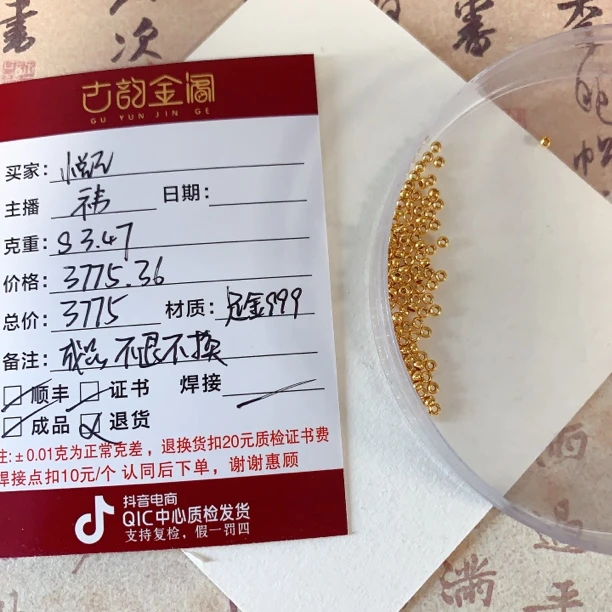 古韵金阁
GU YUN JIN GE
买家：
主播 祎 日期：
克重：S 3.47
价格：3775.36
总价：3775 材质：足金999
备注：成品，不退不换
顺丰 证书 焊接
成品 退货
注：±0.01克为正常克差，退换货扣20元质检证书费
焊接点扣10元/个 认同后下单，谢谢惠顾
抖音电商
QIC中心质检发货
支持复检，假一罚四